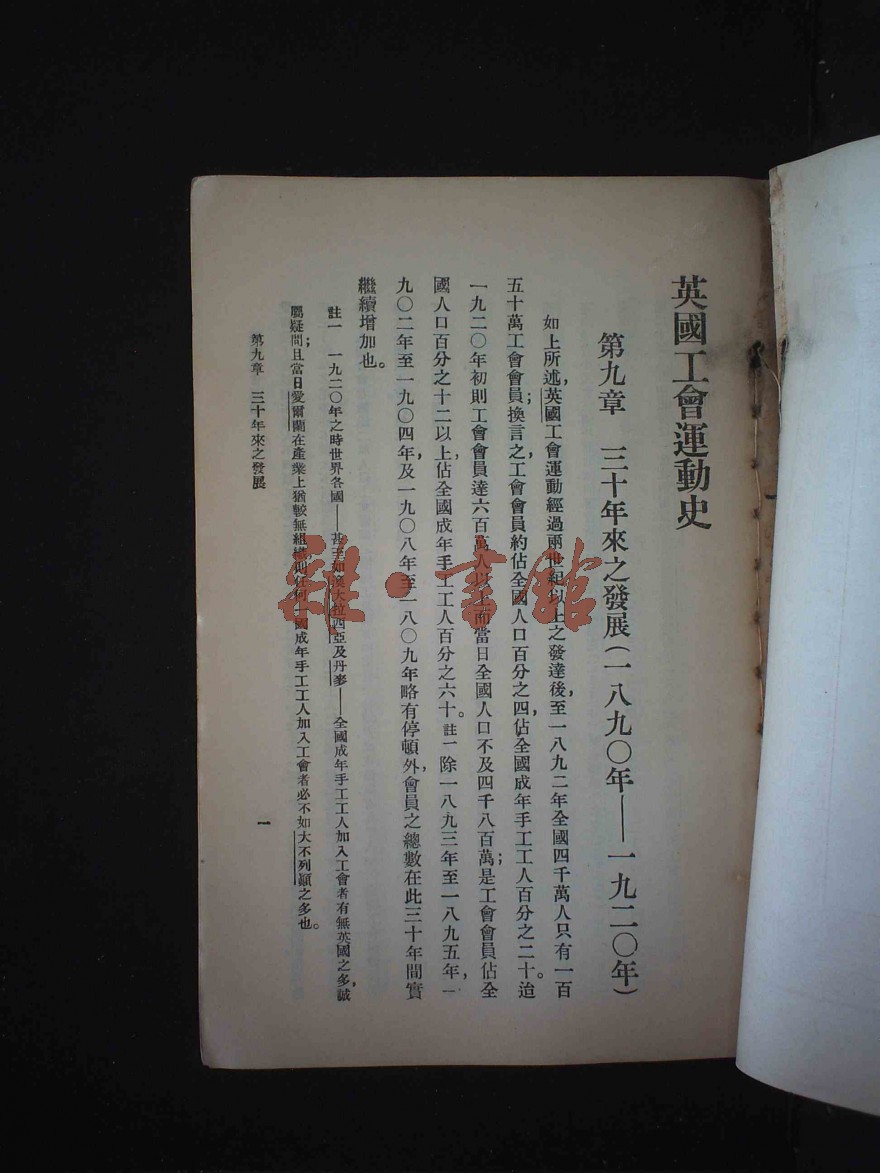 英國工會運動史
第九章　三十年來之發展(一八九〇年——一九二〇年)
如上所述，英國工會運動經過兩世紀以上之發達後，至一八九二年全國四千萬人只有一百
五十萬工會會員；換言之，工會會員約佔全國人口百分之四，佔全國成年手工工人百分之二十。迨
一九二〇年初則工會會員達六百萬人以上，而當日全國人口不及四千八百萬；是工會會員佔全
國人口百分之十二以上，佔全國成年手工工人百分之六十。註一除一八九三年至一八九五年，一
九〇二年至一九〇四年，及一九〇八年至一八〇九年略有停頓外，會員之總數在此三十年間實
繼續增加也。
註一　一九二〇年之時世界各國——甚至如澳大拉西亞及丹麥——全國成年手工工人加入工會者有無英國之多，誠
屬疑問；且當日愛爾蘭在產業上猶較無組織，則任何一國成年手工工人加入工會者必不如大不列顛之多也。
第九章　三十年來之發展
一
雜·書館